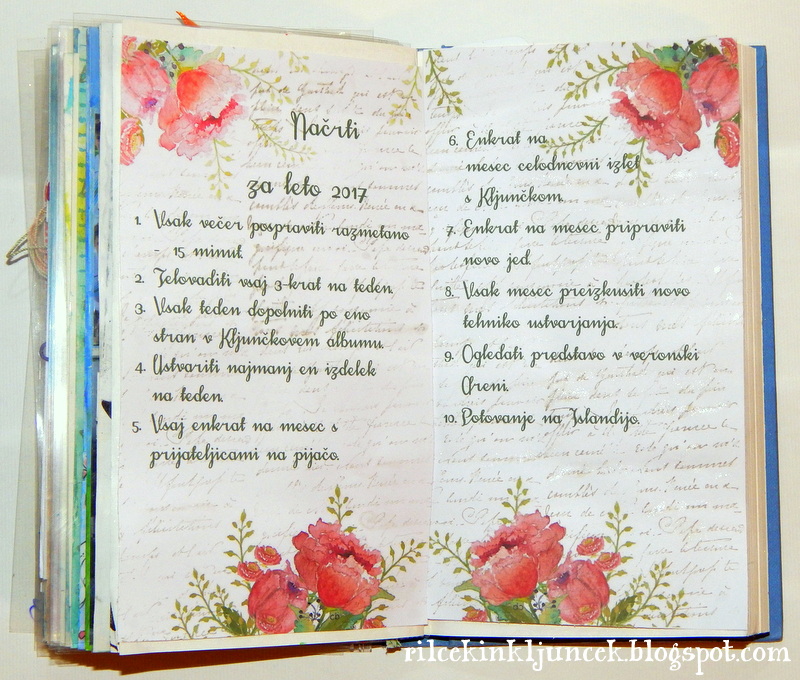 Načrti
za leto 2017
1. Vsak večer pospraviti razmetano
- 15 minut.
2. Telovaditi vsaj 3-krat na teden.
3. Vsak teden dopolniti po eno
stran v Kljunčkovem albumu.
4. Ustvariti najmanj en izdelek
na teden.
5. Vsaj enkrat na mesec s
prijateljicami na pijačo.
6. Enkrat na
mesec celodnevni izlet
s Kljunčkom.
7. Enkrat na mesec pripraviti
novo jed.
8. Vsak mesec preizkusiti novo
tehniko ustvarjanja.
9. Ogledati predstavo v veronski
Areni.
10. Potovanje na Islandijo.
rilcekinkljuncek.blogspot.com